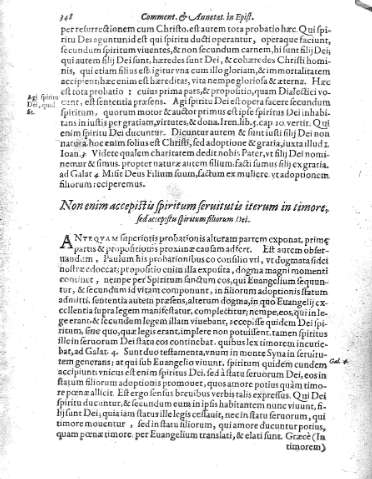 348 Comment. & Annotat. in Epist.
per resurrectionem cum Christo. est autem tota probatio hæc. Qui spi-
ritu Dei aguntur id est qui spiritu ducti operantur, operaque faciunt,
secundum spiritum viuentes, & non secundum carnem, hi sunt filij Dei;
qui autem filij Dei sunt, hæredes sunt Dei, & cohæredes Christi homi-
nis, qui etiam filius est igitur vna cum illo gloriam, & immortalitatem
accipient, hæc enim est hæreditas, vita nempe gloriosa & æterna. Hæc
est tota probatio: cuius prima pars, & propositio, quam Dialectici vo-
cant, est sententia præsens. Agi spiritu Dei est opera facere secundum
spiritum, quorum motor & auctor primus est ipse spiritus Dei inhabi-
tans in iustis per gratiam, virtutes, & dona. Iren. lib. 5. cap 20. vertit. Qui
enim spiritu Dei ducuntur. Dicuntur autem & sunt iusti filij Dei non
natura. hoc enim solius est Christi, sed adoptione & gratia, iuxta illud 1.
Ioan. 3. Videte qualem charitatem dedit nobis Pater, vt filij Dei nomi-
nemur & simus. propter naturæ autem filium, facti sumus filij ex gratia.
ad Galat 4. Misit Deus Filium suum, factum ex muliere. vt adoptionem
filiorum reciperemus.
Agi spiritu
Dei, quid
sit.
Non enim accepistis spiritum seruitutis iterum in timore,
sed accepistis spiritum filiorum Dei.
ANTEQVAM superioris probationis alteram partem exponat, primæ
partis & propositionis proximæ causam adfert. Est autem obser-
uandum, Paulum his probationibus eo consilio vti, vt dogmata fidei
nostræ edoceat; propositio enim illa exposita, dogma magni momenti
continet, nempe per Spiritum sanctum eos, qui Euangelium sequun-
tur, & secundum id vitam componunt, in filiorum adoptionis statum
admitti. sententia autem præsens, alterum dogma, in quo Euangelij ex-
cellentia supra legem manifestatur, complectitur; nempe, eos, qui in le-
ge erant, & secundum legem illam viuebant, recepisse quidem Dei spi-
ritum, sine quo, quæ legis erant, implere non potuissent. tamen spiritus
ille in seruorum Dei statu eos continebat. quibus lex timorem incutie-
bat, ad Galat. 4. Sunt duo testamenta, vnum in monte Syna in seruitu-
tem generans; at qui sub Euangelio viuunt. spiritum quidem eundem
accipiunt: vnicus est enim spiritus Dei. sed à statu seruorum Dei, eos in
statum filiorum adoptionis promouet, quos amore potius quàm timo-
re pœnæ allicit. Est ergo sensus breuibus verbis talis expressus. Qui Dei
spiritu ducuntur, & secundum eum in ipsis habitantem nunc viuunt, fi-
lij sunt Dei; quia iam status ille legis cessauit, nec in statu seruorum, qui
timore mouentur, sed in statu filiorum, qui amore ducuntur potius,
quam pœnæ timore. per Euangelium translati, & elati sunt. Græcè (In
timorem)
Gal. 4.